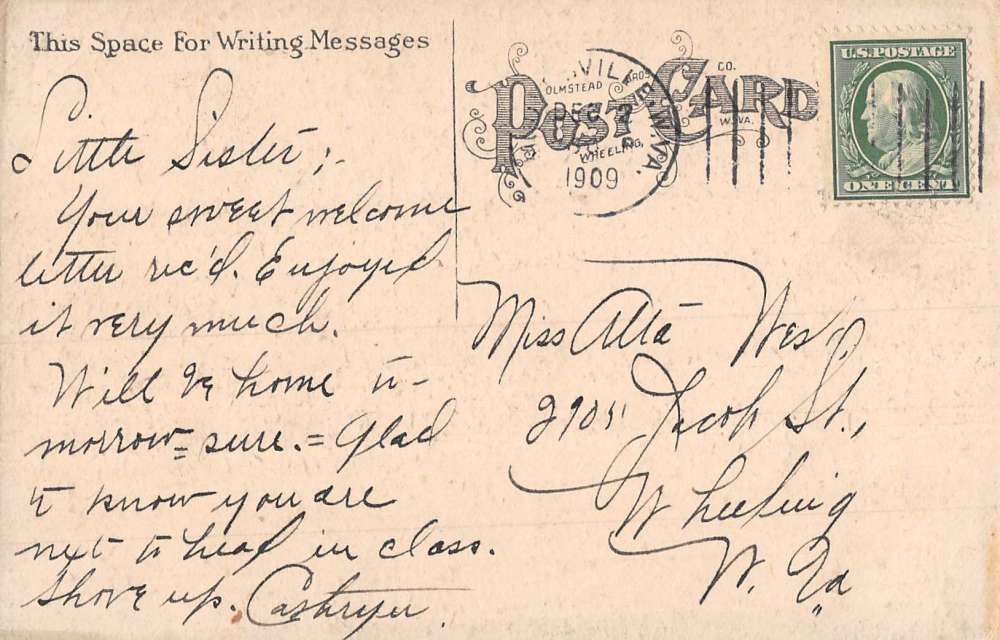 This Space For Writing Messages
POST CARD
OLMSTEAD BROS. CO.
WHEELING, W.VA.
VILLE, W.VA.
DEC
1909
U.S. POSTAGE
ONE CENT
Little Sister;-
Your sweet welcome
letter rec'd. Enjoyed
it very much.
Will be home to-
morrow = sure. = Glad
to know you are
next to head in class.
Shove up.
Miss Alta West
Jacob St.,
Wheeling
W. Va